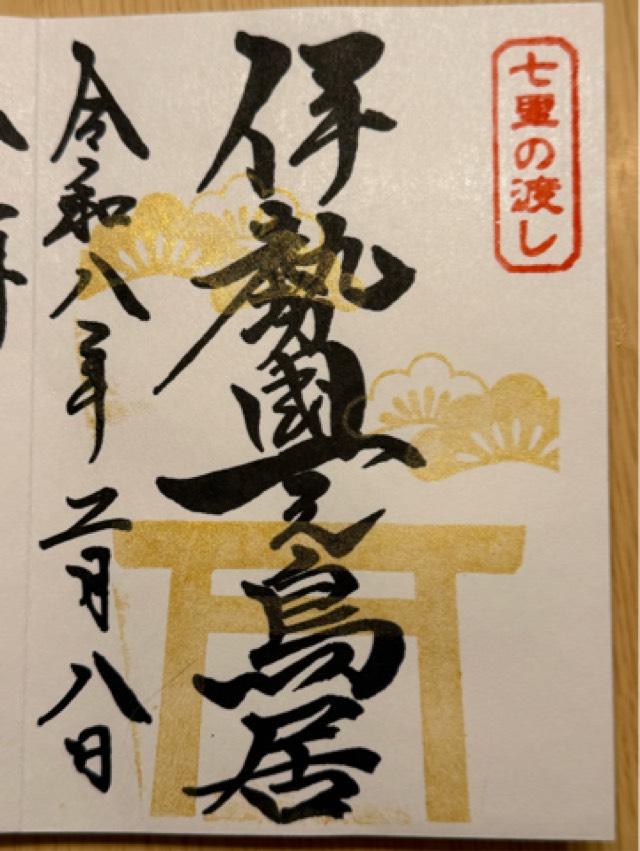 七里の渡し
伊勢國一之鳥居
令和八年二月八日